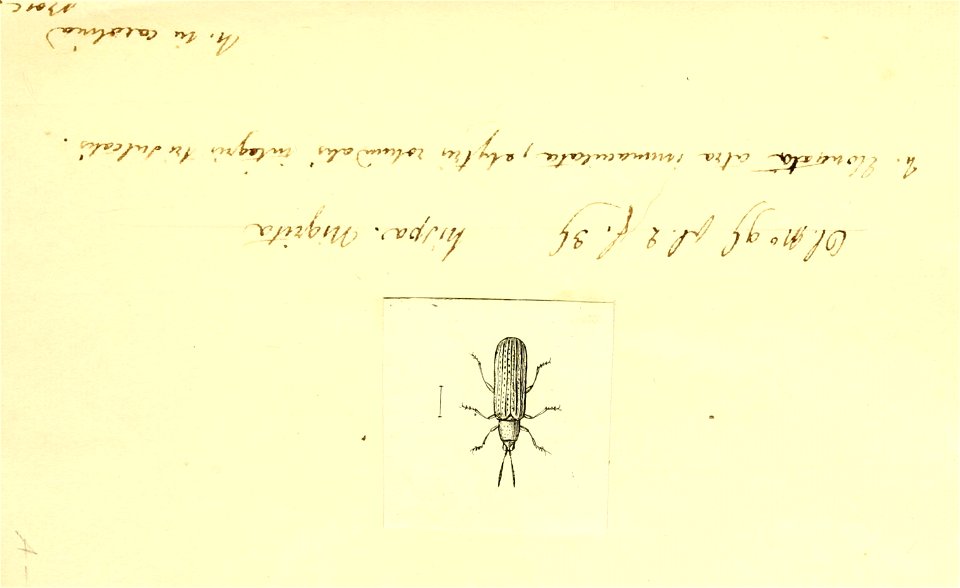 Ol. no 95 pl. 2 f. 35 hispa. Nigrita
h. Elongata atra immaculata, elytris rotundatis integris tri sulcatis.
h. in carolina
Bosc.